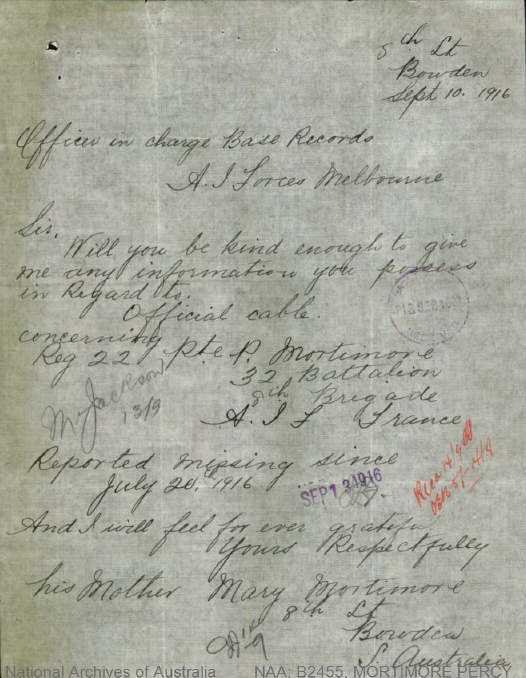 8th St
Bowden
Sept 10. 1916
Officer in charge Base Records
A. I Forces Melbourne
Sir.
Will you be kind enough to give
me any information you possess
in Regard to.
Official cable.
concerning
Reg 22 Pte P. Mortimore
32 Battalion
8th Brigade
A. I F France
Mr Jackson
13/9
Reported missing since
July 20, 1916
SEP 13 1916
And I will feel for ever grateful
Yours Respectfully
his Mother Mary Mortimore
8th St
Bowden
S. Australia
National Archives of Australia
NAA: B2455, MORTIMORE PERCY